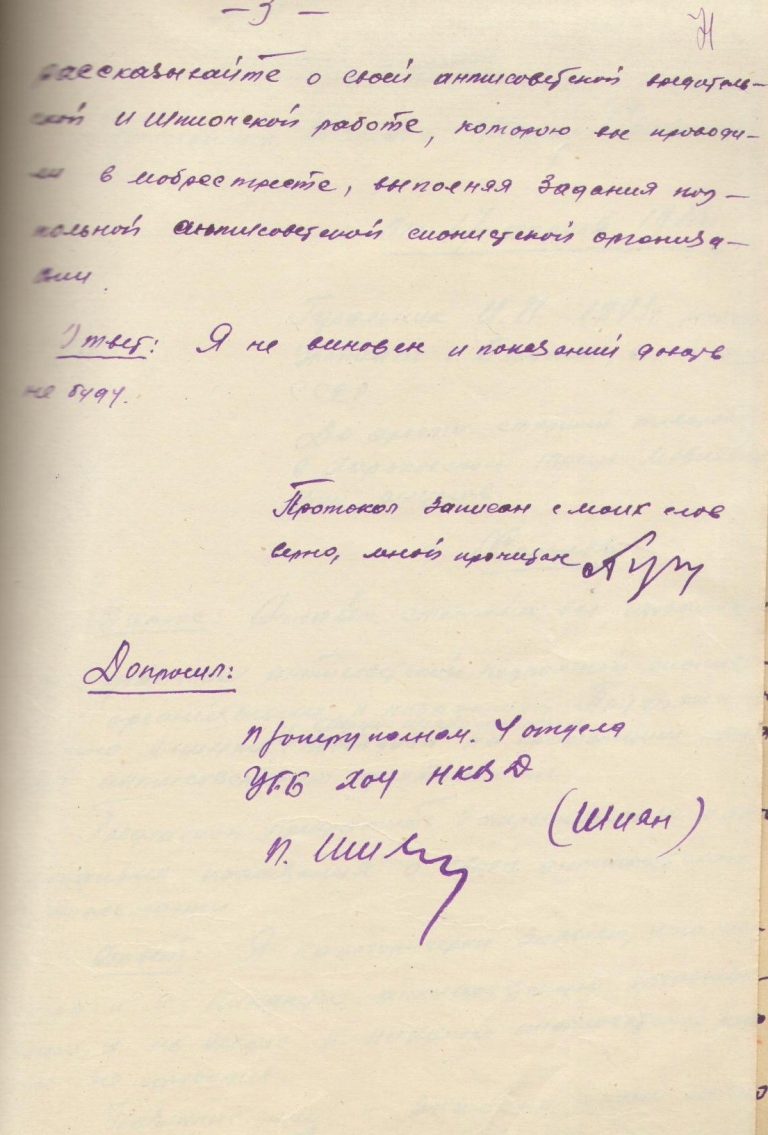 — 3 —
рассказывайте о своей антисоветской вредитель-
ской и шпионской работе, которую вы проводи-
ли в мобрестресте, выполняя задания под-
польной антисоветской сионистской организа-
ции.
Ответ: Я не виновен и показаний давать
не буду.
Протокол записан с моих слов
верно, мной прочитан
Допросил:
п/оперуполном. 4 отдела
УГБ ХОУ НКВД
(Шиян)
п. Шиян